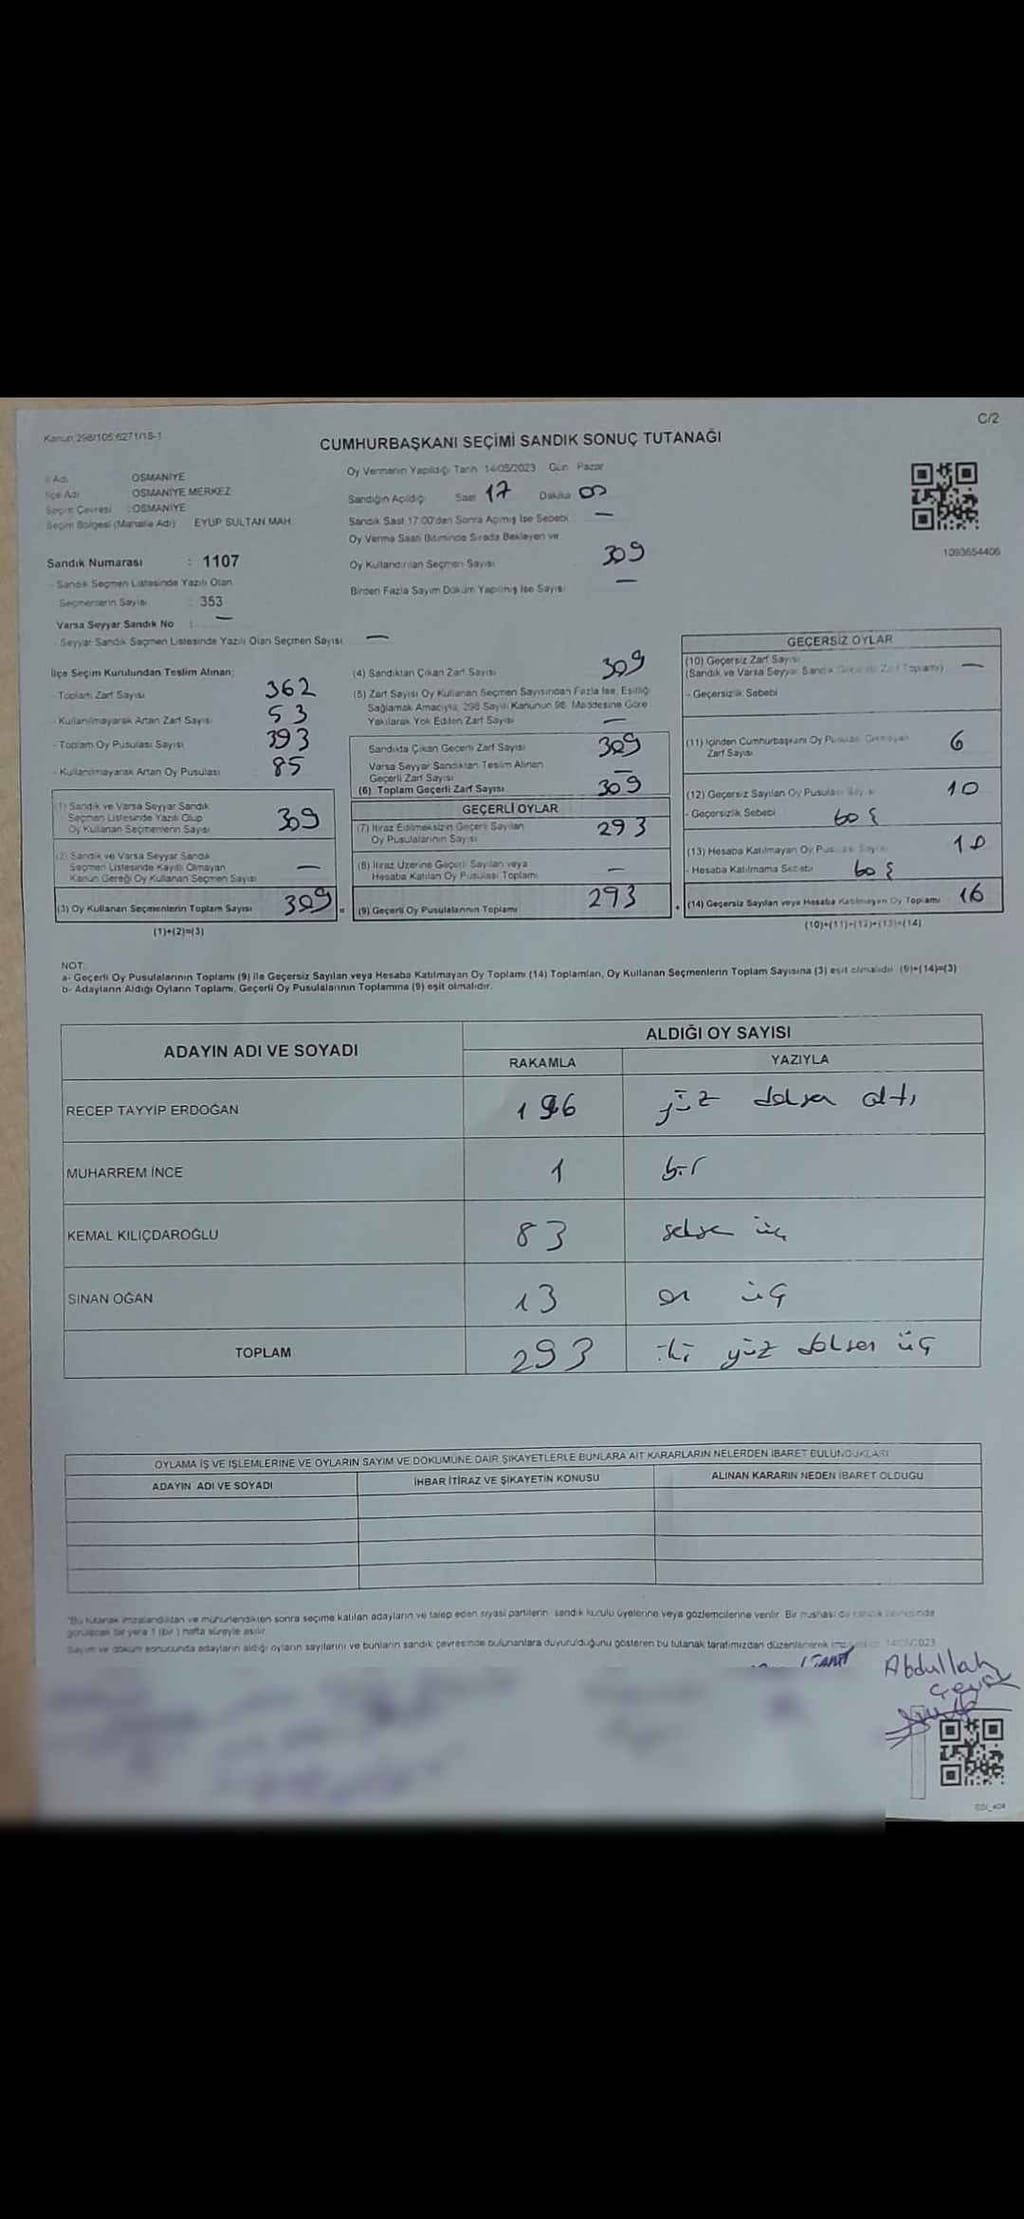 C/2
Kanun:298/105 6271/18-1
CUMHURBAŞKANI SEÇİMİ SANDIK SONUÇ TUTANAĞI
İl Adı OSMANİYE
İlçe Adı OSMANİYE MERKEZ
Seçim Çevresi : OSMANİYE
Seçim Bölgesi (Mahalle Adı) EYUP SULTAN MAH.
Oy Vermenin Yapıldığı Tarih 14/05/2023 Gün Pazar
Sandığın Açıldığı Saat 17 Dakika 00
Sandık Saat 17:00'dan Sonra Açılmış İse Sebebi —
Oy Verme Saati Bitiminde Sırada Bekleyen ve
Oy Kullandırılan Seçmen Sayısı 309
Birden Fazla Sayım Döküm Yapılmış İse Sayısı —
1093654406
Sandık Numarası : 1107
- Sandık Seçmen Listesinde Yazılı Olan
Seçmenlerin Sayısı : 353
Varsa Seyyar Sandık No : —
- Seyyar Sandık Seçmen Listesinde Yazılı Olan Seçmen Sayısı —
İlçe Seçim Kurulundan Teslim Alınan;
- Toplam Zarf Sayısı 362
- Kullanılmayarak Artan Zarf Sayısı 53
- Toplam Oy Pusulası Sayısı 393
- Kullanılmayarak Artan Oy Pusulası 85
(1) Sandık ve Varsa Seyyar Sandık
Seçmen Listesinde Yazılı Olup
Oy Kullanan Seçmenlerin Sayısı 309
(2) Sandık ve Varsa Seyyar Sandık
Seçmen Listesinde Kayıtlı Olmayan
Kanun Gereği Oy Kullanan Seçmen Sayısı —
(3) Oy Kullanan Seçmenlerin Toplam Sayısı 309 =
(1)+(2)=(3)
(4) Sandıktan Çıkan Zarf Sayısı 309
(5) Zarf Sayısı Oy Kullanan Seçmen Sayısından Fazla İse, Eşitliği
Sağlamak Amacıyla, 298 Sayılı Kanunun 98. Maddesine Göre
Yakılarak Yok Edilen Zarf Sayısı —
Sandıkta Çıkan Geçerli Zarf Sayısı 309
Varsa Seyyar Sandıktan Teslim Alınan
Geçerli Zarf Sayısı —
(6) Toplam Geçerli Zarf Sayısı 309
GEÇERLİ OYLAR
(7) İtiraz Edilmeksizin Geçerli Sayılan
Oy Pusulalarının Sayısı 293
(8) İtiraz Üzerine Geçerli Sayılan veya
Hesaba Katılan Oy Pusulası Toplamı —
(9) Geçerli Oy Pusulalarının Toplamı 293 +
GEÇERSİZ OYLAR
(10) Geçersiz Zarf Sayısı
(Sandık ve Varsa Seyyar Sandık Zarf Toplamı) —
- Geçersizlik Sebebi
(11) İçinden Cumhurbaşkanı Oy Pusulası Çıkmayan
Zarf Sayısı 6
(12) Geçersiz Sayılan Oy Pusulası Sayısı 10
- Geçersizlik Sebebi boş
(13) Hesaba Katılmayan Oy Pusulası Sayısı 10
- Hesaba Katılmama Sebebi boş
(14) Geçersiz Sayılan veya Hesaba Katılmayan Oy Toplamı 16
(10)+(11)+(12)+(13)=(14)
NOT:
a- Geçerli Oy Pusulalarının Toplamı (9) ile Geçersiz Sayılan veya Hesaba Katılmayan Oy Toplamı (14) Toplamları, Oy Kullanan Seçmenlerin Toplam Sayısına (3) eşit olmalıdır. (9)+(14)=(3)
b- Adayların Aldığı Oyların Toplamı, Geçerli Oy Pusulalarının Toplamına (9) eşit olmalıdır.
ADAYIN ADI VE SOYADI ALDIĞI OY SAYISI
RAKAMLA YAZIYLA
RECEP TAYYİP ERDOĞAN 196 yüz doksan altı
MUHARREM İNCE 1 bir
KEMAL KILIÇDAROĞLU 83 seksen üç
SİNAN OĞAN 13 on üç
TOPLAM 293 iki yüz doksan üç
OYLAMA İŞ VE İŞLEMLERİNE VE OYLARIN SAYIM VE DÖKÜMÜNE DAİR ŞİKAYETLERLE BUNLARA AİT KARARLARIN NELERDEN İBARET BULUNDUKLARI
ADAYIN ADI VE SOYADI İHBAR İTİRAZ VE ŞİKAYETİN KONUSU ALINAN KARARIN NEDEN İBARET OLDUĞU
*Bu tutanak imzalandıktan ve mühürlendikten sonra seçime katılan adayların ve talep eden siyasi partilerin sandık kurulu üyelerine veya gözlemcilerine verilir. Bir nüshası da sandık çevresinde
görülecek bir yere 1 (bir) hafta süreyle asılır.
Sayım ve döküm sonucunda adayların aldığı oyların sayılarını ve bunların sandık çevresinde bulunanlara duyurulduğunu gösteren bu tutanak tarafımızdan düzenlenerek 14/05/2023
Abdullah